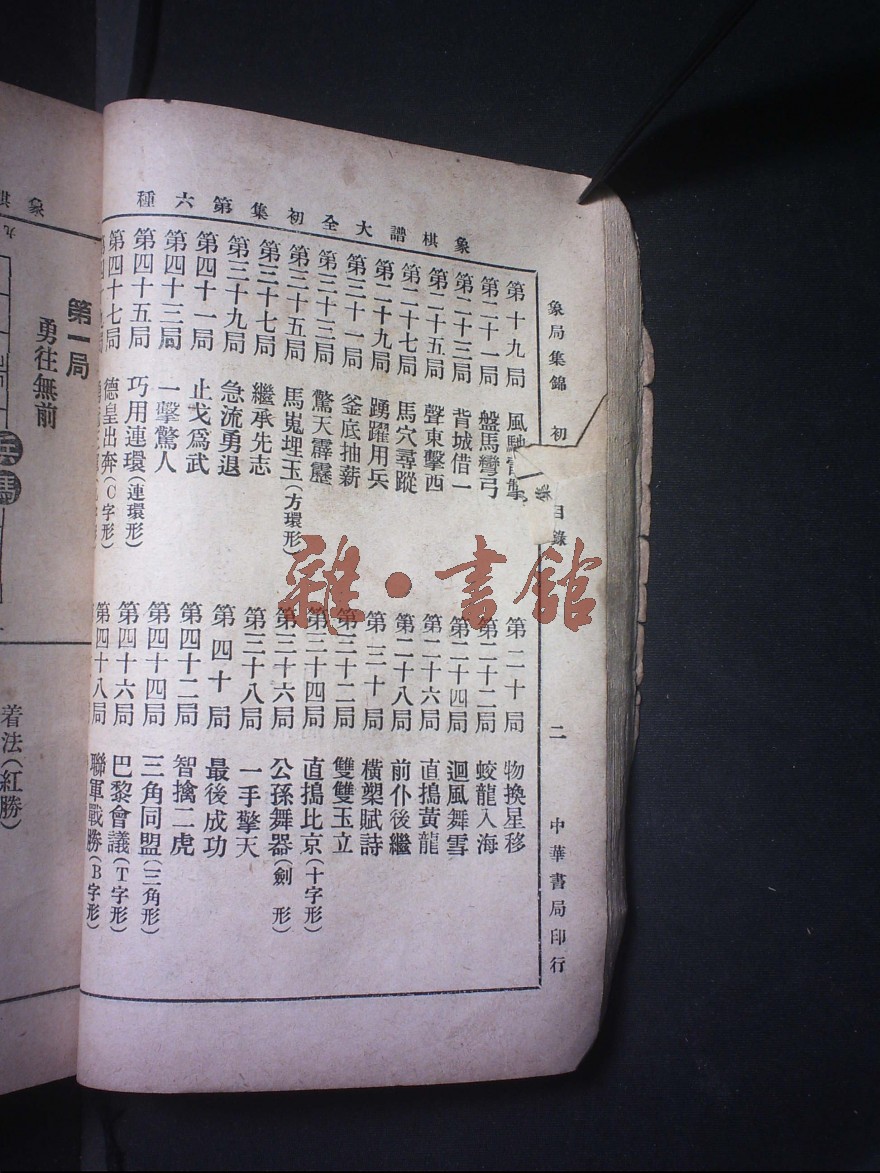 象棋譜大全初集第六種
象局集錦 初集目錄 二 中華書局印行
第十九局 風馳 第二十局 物換星移
第二十一局 盤馬彎弓 第二十二局 蛟龍入海
第二十三局 背城借一 第二十四局 迴風舞雪
第二十五局 聲東擊西 第二十六局 直搗黃龍
第二十七局 馬穴尋蹤 第二十八局 前仆後繼
第二十九局 踴躍用兵 第三十局 橫槊賦詩
第三十一局 釜底抽薪 第三十二局 雙雙玉立
第三十三局 驚天霹靂 第三十四局 直搗比京(十字形)
第三十五局 馬嵬埋玉(方環形) 第三十六局 公孫舞器(劍形)
第三十七局 繼承先志 第三十八局 一手擎天
第三十九局 急流勇退 第四十局 最後成功
第四十一局 止戈爲武 第四十二局 智擒二虎
第四十三局 一擊驚人 第四十四局 三角同盟(三角形)
第四十五局 巧用連環(連環形) 第四十六局 巴黎會議(T字形)
第四十七局 德皇出奔(C字形) 第四十八局 聯軍戰勝(B字形)
雜·書館
象棋
第一局
勇往無前
九
兵
馬
着法(紅勝)